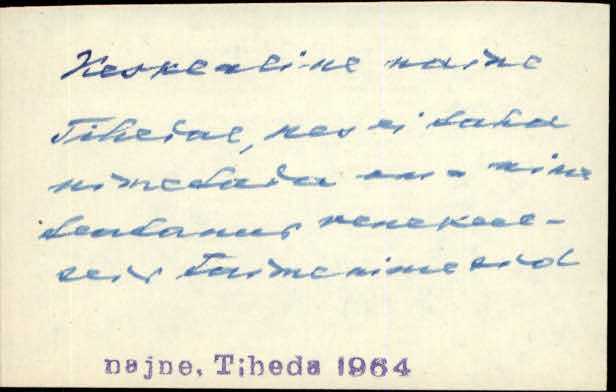 Keskealine naine
Tihedal, kes ei taha
nimetada oma nime
teatanud venekeel-
seid taimenimesid
najne. Tiheda 1964